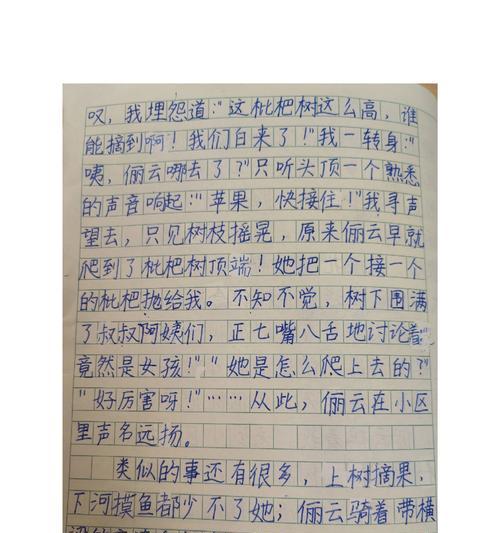 叹，我埋怨道："这枇杷树这么高，谁
能摘到啊！我们白来了！"我一转身"
咦，俪云哪去了？"只听头顶一个熟悉
的声音响起："苹果，快接住！"我寻声
望去，只见树枝摇晃，原来俪云早就
爬到了枇杷树顶端！她把一个接一个
的枇杷抛给我。不知不觉，树下围满
了叔叔阿姨们，正七嘴八舌地讨论着："
竟然是女孩！""她是怎么爬上去的？"
"好厉害呀！"……从此，俪云在小区
里声名远扬。
类似的事还有很多，上树摘果，
下河摸鱼都少不了她；俪云骑着带横